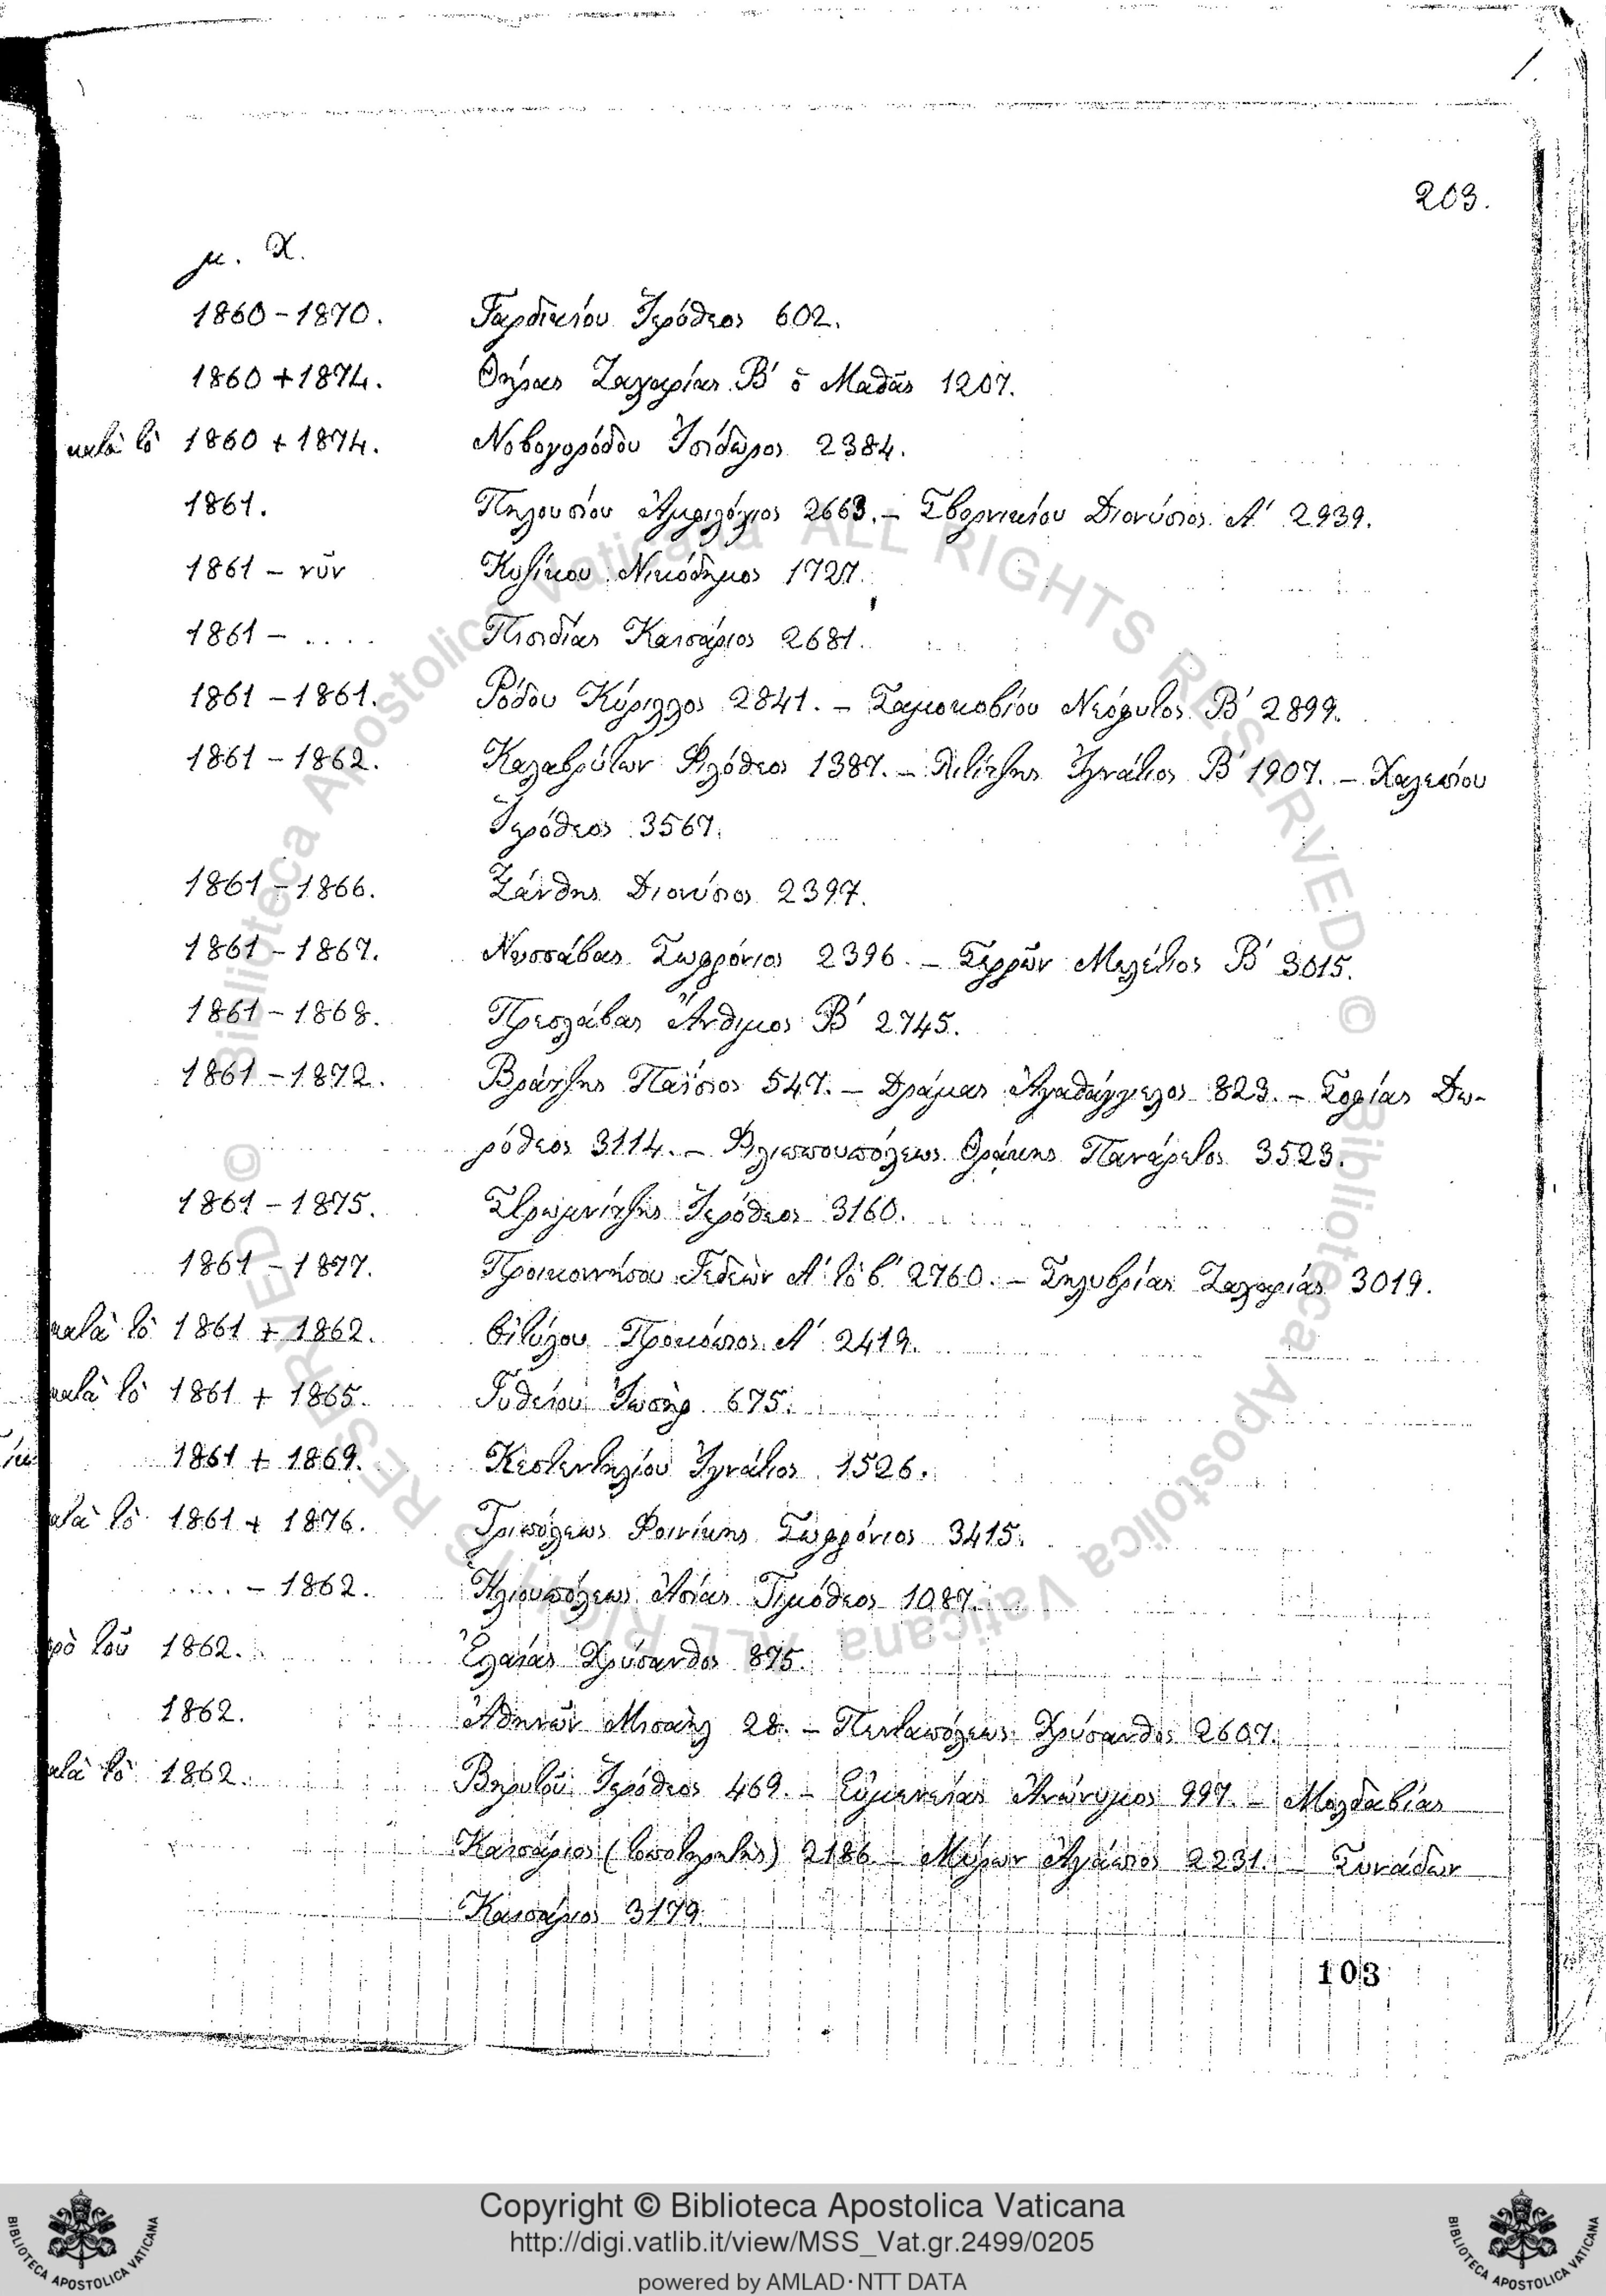 203.
μ. Χ.
1860 - 1870. Γαρδικίου Ἱερόθεος 602.
1860 + 1874. Θήρας Ζαχαρίας Β΄ ὁ Μαθᾶς 1207.
κατὰ τὸ 1860 + 1874. Νοβογορόδου Ἰσίδωρος 2384.
1861. Πηλουσίου Ἀμφιλόχιος 2663. – Σβορνικίου Διονύσιος Α΄ 2939.
1861 – νῦν Κυζίκου Νικόδημος 1727.
1861 – .... Πισιδίας Καισάριος 2681.
1861 – 1861. Ρόδου Κύριλλος 2841. – Σαμοκοβίου Νεόφυτος Β΄ 2899.
1861 – 1862. Καλαβρύτων Φιλόθεος 1387. – Λιτίτζης Ἰγνάτιος Β΄ 1907. – Χαλεπίου
Ἱερόθεος 3567.
1861 – 1866. Ξάνθης Διονύσιος 2397.
1861 – 1867. Νυσσάβας Σωφρόνιος 2396. – Σερρῶν Μελέτιος Β΄ 3015.
1861 – 1868. Πρεσλάβας Ἄνθιμος Β΄ 2745.
1861 – 1872. Βράτζης Παΐσιος 547. – Δράμας Ἀγαθάγγελος 823. – Σοφίας Δω-
ρόθεος 3114. – Φιλιππουπόλεως Θράκης Πανάρετος 3523.
1861 – 1875. Στρωμνίτζης Ἱερόθεος 3160.
1861 – 1877. Προικοννήσου Γεδεὼν Α΄ τὸ β΄ 2760. – Σηλυβρίας Ζαχαρίας 3019.
κατὰ τὸ 1861 + 1862. Οἰτύλου Προκόπιος Α΄ 2419.
κατὰ τὸ 1861 + 1865. Γυθείου Ἰωσὴφ 675.
1861 + 1869. Κεστεντηλίου Ἰγνάτιος 1526.
ατὰ τὸ 1861 + 1876. Τριπόλεως Φοινίκης Σωφρόνιος 3415.
.... – 1862. Ἡλιουπόλεως Ἀσίας Τιμόθεος 1087.
ρὸ τοῦ 1862. Ἐλαίας Χρύσανθος 875.
1862. Ἀθηνῶν Μισαὴλ 28. – Πενταπόλεως Χρύσανθος 2607.
ατὰ τὸ 1862. Βηρυτοῦ Ἱερόθεος 469. – Εὐμενείας Ἀνώνυμος 997. – Μολδαβίας
Καισάριος (τοποτηρητὴς) 2186 – Μύρων Ἀγάπιος 2231. – Συνάδων
Καισάριος 3179.
103
Copyright © Biblioteca Apostolica Vaticana
http://digi.vatlib.it/view/MSS_Vat.gr.2499/0205
powered by AMLAD·NTT DATA